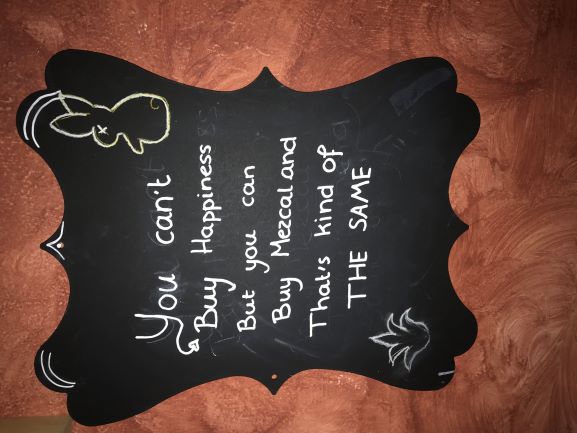 You can't
Buy Happiness
But you can
Buy Mezcal and
That's kind of
THE SAME